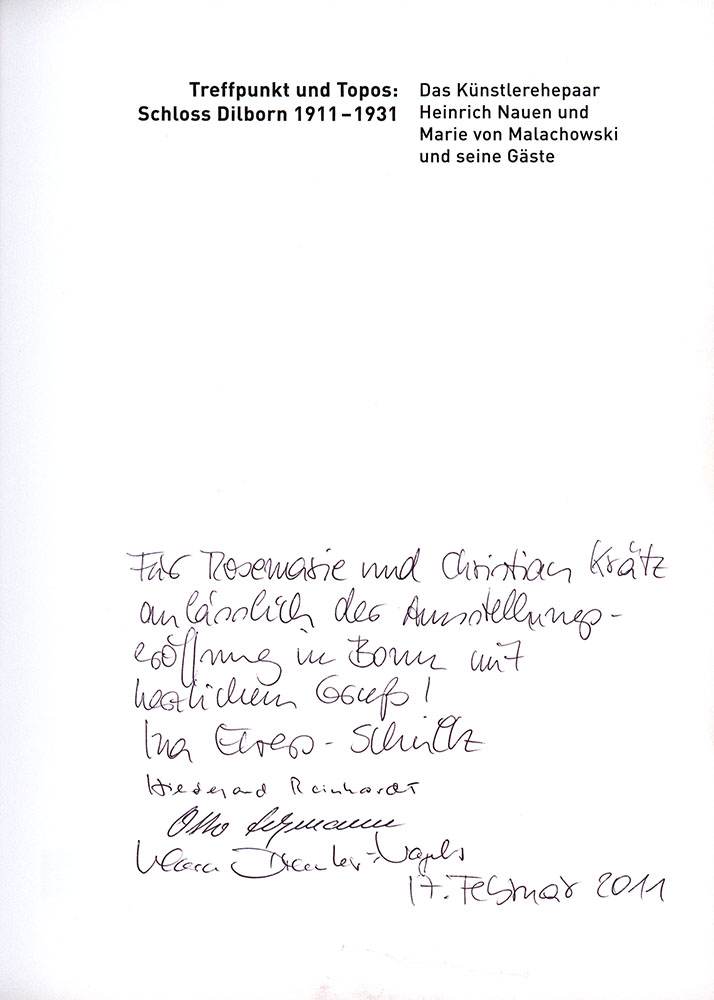 Treffpunkt und Topos:
Schloss Dilborn 1911–1931
Das Künstlerehepaar
Heinrich Nauen und
Marie von Malachowski
und seine Gäste
Für Rosemarie und Christian Krätz
anlässlich der Ausstellungs-
eröffnung in Bonn mit
herzlichem Gruß!
Ina Ewers-Schultz
Hildegard Reinhardt
Otto
Klara
17. Februar 2011